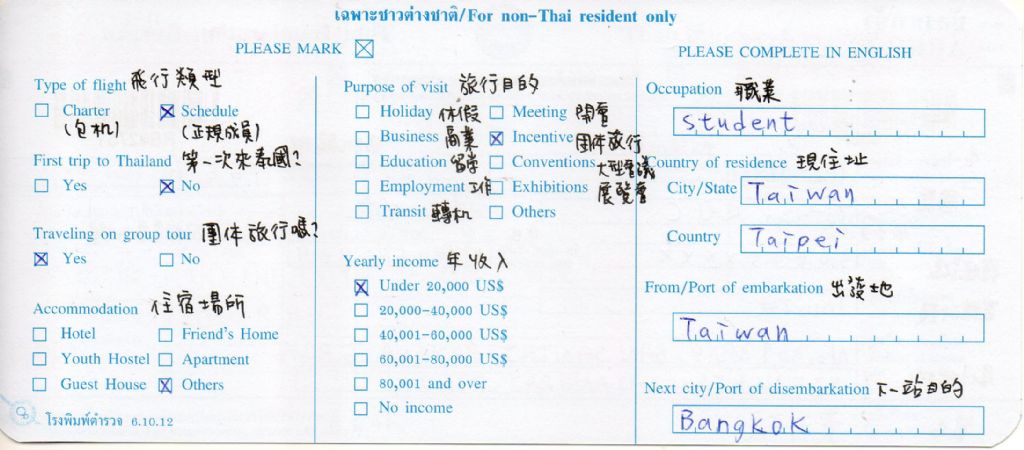 เฉพาะชาวต่างชาติ/For non-Thai resident only
PLEASE MARK
PLEASE COMPLETE IN ENGLISH
Type of flight 飛行類型
Charter
Schedule
(包机)
(正規成員)
First trip to Thailand 第一次來泰國?
Yes
No
Traveling on group tour 團体旅行嗎?
Yes
No
Accommodation 住宿場所
Hotel
Friend's Home
Youth Hostel
Apartment
Guest House
Others
โรงพิมพ์ตำรวจ 6.10.12
Purpose of visit 旅行目的
Holiday 休假
Meeting 開會
Business 商業
Incentive 团体旅行
Education 留学
Conventions 大型會議
Employment 工作
Exhibitions 展覽會
Transit 轉机
Others
Yearly income 年收入
Under 20,000 US$
20,000-40,000 US$
40,001-60,000 US$
60,001-80,000 US$
80,001 and over
No income
Occupation 職業
student
Country of residence 現住址
City/State Taiwan
Country Taipei
From/Port of embarkation 出發地
Taiwan
Next city/Port of disembarkation 下一站目的
Bangkok